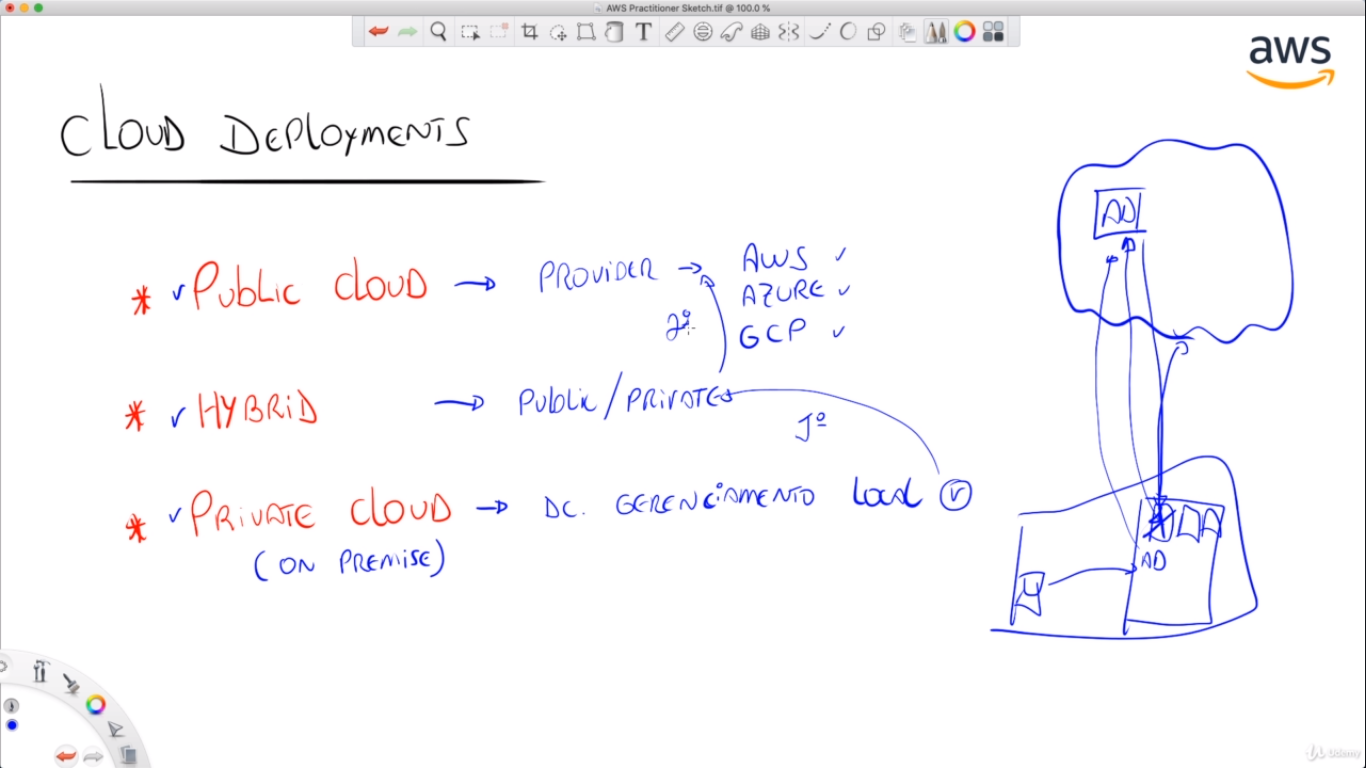 AWS Practitioner Sketch.tif @ 100.0 %
aws
CLOUD DEPLOYMENTS
* ✓ PUBLIC CLOUD → PROVIDER → AWS ✓
AZURE ✓
GCP ✓
2º
* ✓ HYBRID → PUBLIC/PRIVATE
1º
* ✓ PRIVATE CLOUD → DC. GERENCIAMENTO LOCAL
(ON PREMISE)
AD
AD
Udemy